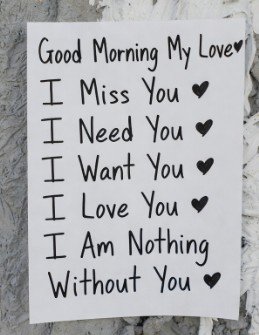 Good Morning My Love♥
I Miss You ♥
I Need You ♥
I Want You ♥
I Love You ♥
I Am Nothing
Without You ♥